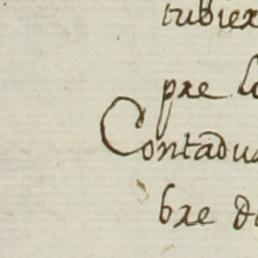 tubiex
pre lo
Contadu
bre de